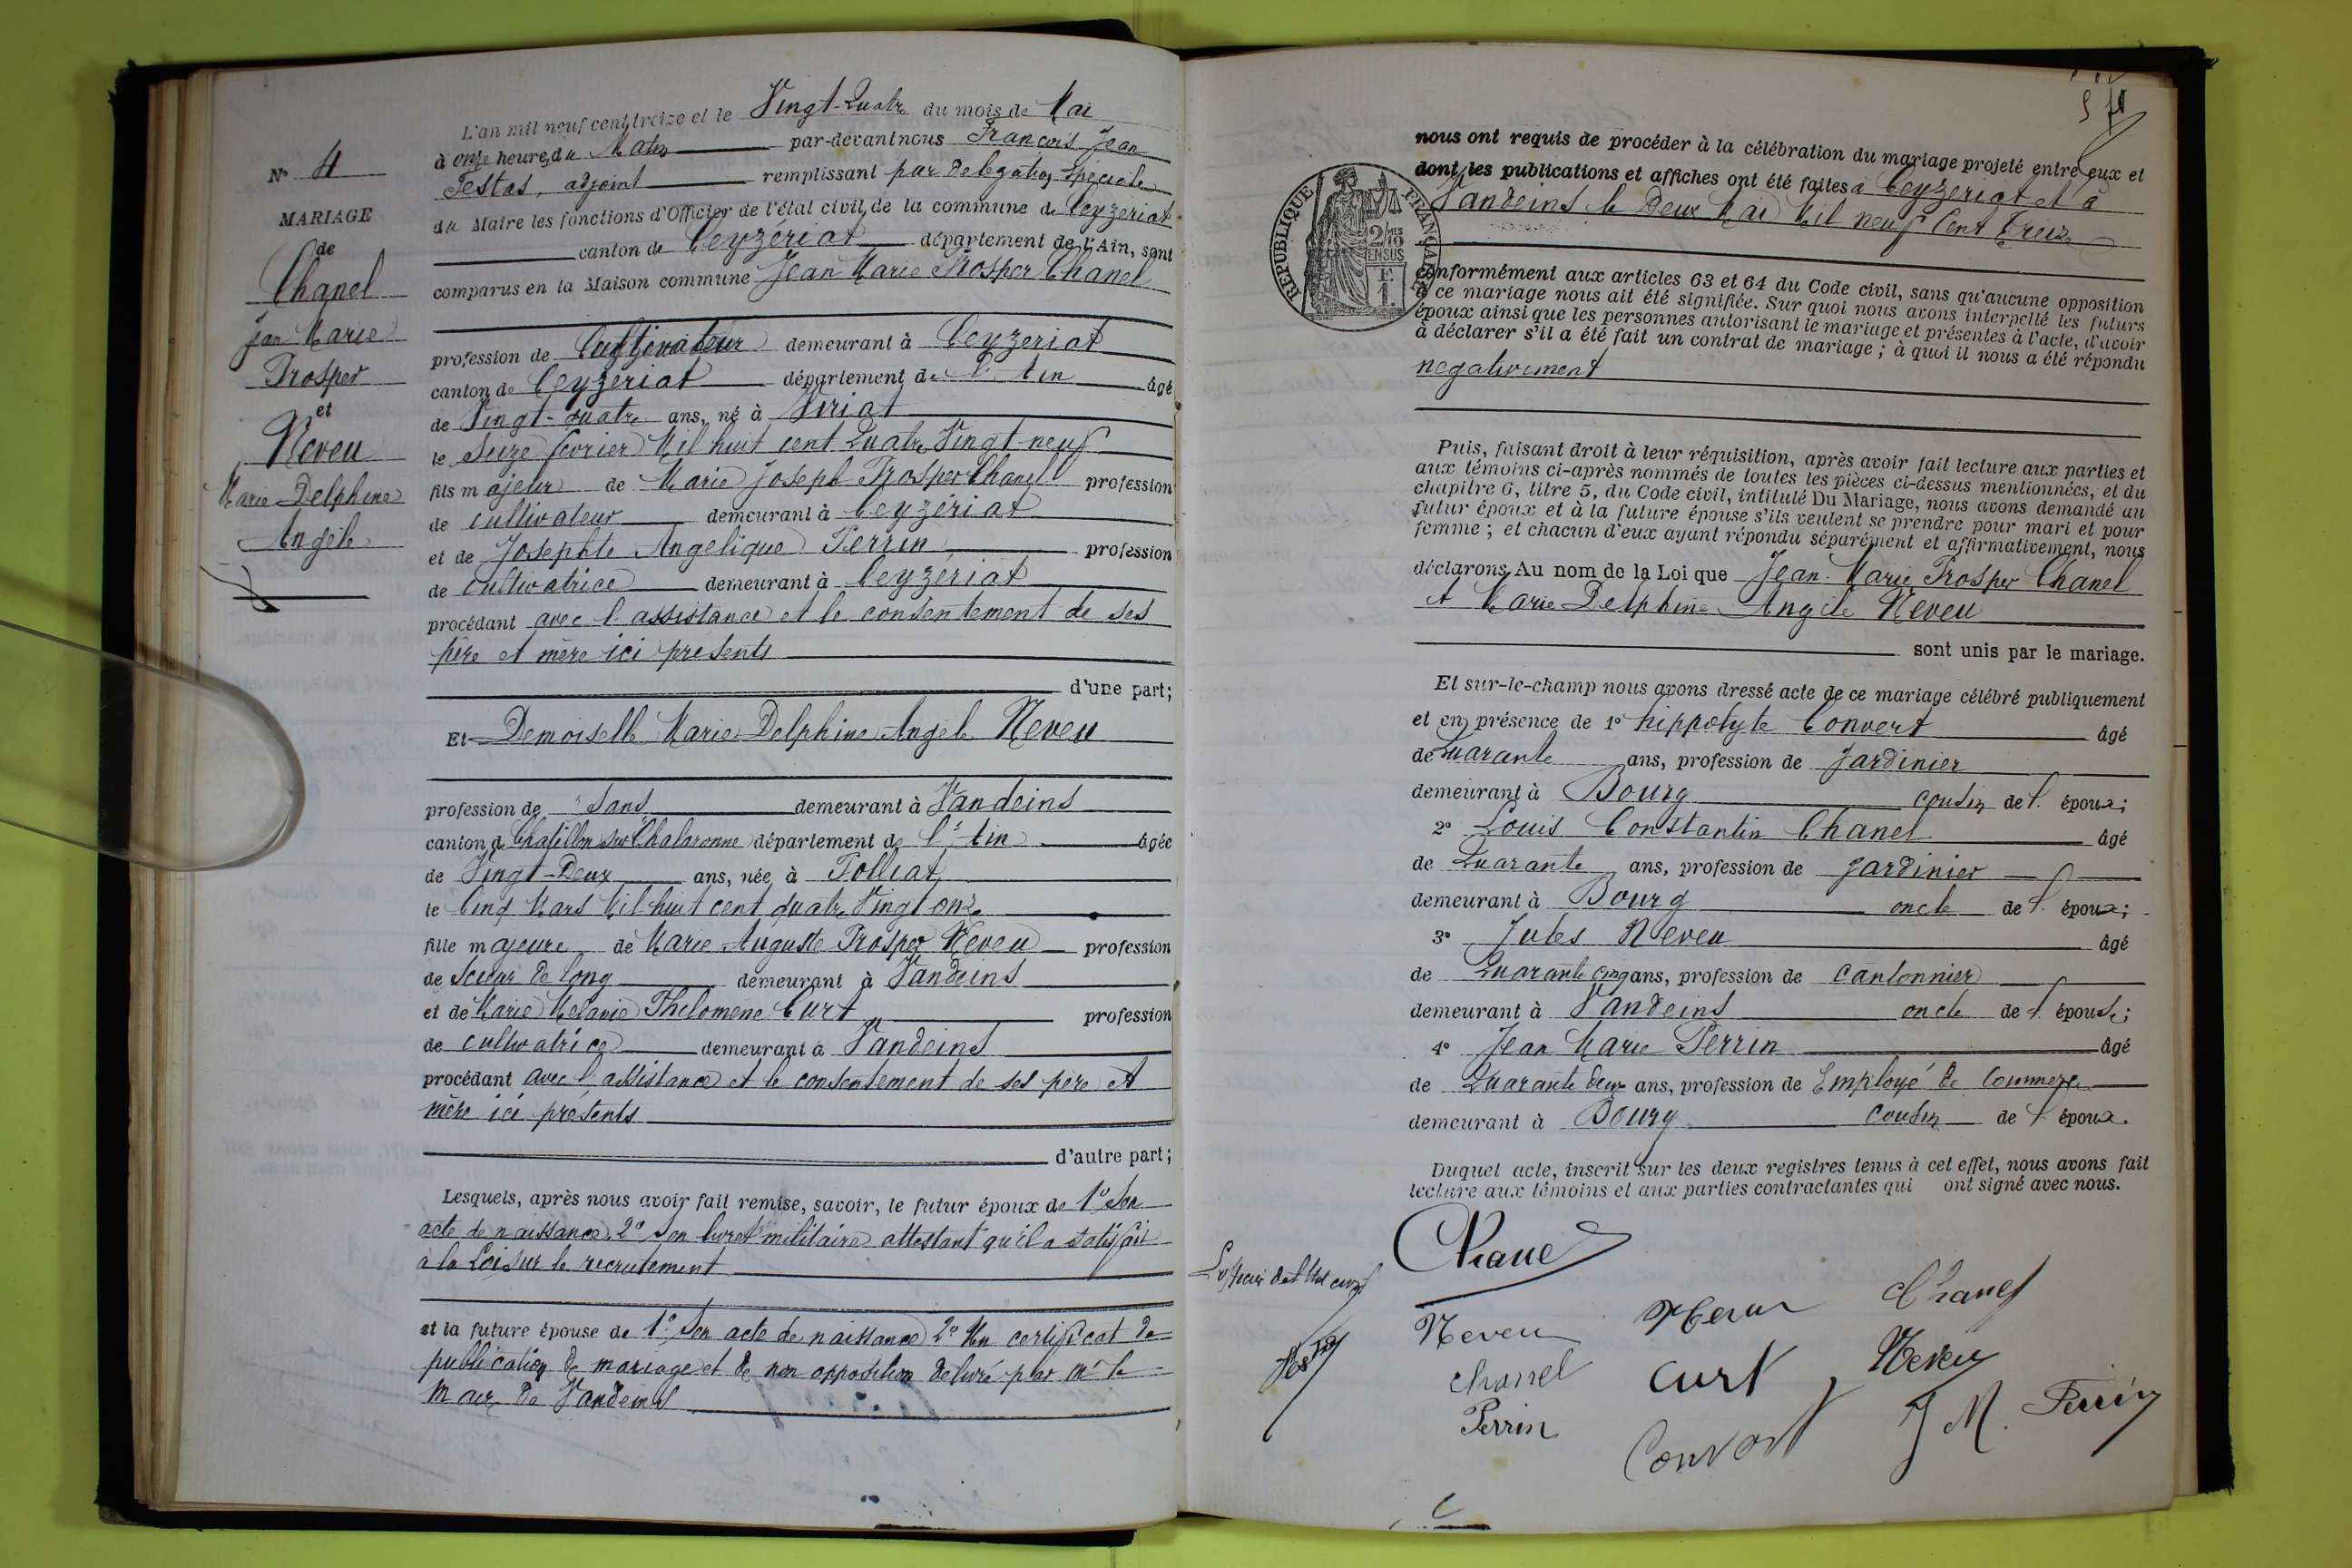 N° 4
MARIAGE
de
Chanel
Jean Marie
Prosper
et
Neveu
Marie Delphine
Angèle
L'an mil neuf cent treize et le Vingt-Quatre du mois de Mai
à onze heures du Matin par-devant nous François Jean
Testas, adjoint remplissant par délégation spéciale
du Maire les fonctions d'Officier de l'état civil de la commune de Ceyzeriat
canton de Ceyzeriat département de l'Ain, sont
comparus en la Maison commune Jean Marie Prosper Chanel
profession de Cultivateur demeurant à Ceyzeriat
canton de Ceyzeriat département de l'Ain âgé
de Vingt-quatre ans, né à Viriat
le Seize février Mil huit cent Quatre Vingt-neuf
fils majeur de Marie Joseph Prosper Chanel profession
de cultivateur demeurant à Ceyzériat
et de Josephte Angelique Perrin profession
de cultivatrice demeurant à Ceyzériat
procédant avec l'assistance et le consentement de ses
père et mère ici presents
d'une part;
Et Demoiselle Marie Delphine Angèle Neveu
profession de sans demeurant à Vandeins
canton de Chatillon sur Chalaronne département de l'Ain âgée
de Vingt-Deux ans, née à Polliat
le Cinq Mars Mil huit cent quatre Vingt onze
fille majeure de Marie Auguste Prosper Neveu profession
de Scieur de long demeurant à Vandeins
et de Marie Melanie Philomene Curt profession
de cultivatrice demeurant à Vandeins
procédant avec l'assistance et le consentement de ses pere et
mère ici présents
d'autre part;
Lesquels, après nous avoir fait remise, savoir, le futur époux de 1° Son
acte de naissance, 2° Son livret militaire attestant qu'il a satisfait
à la Loi sur le recrutement
et la future épouse de 1° Son acte de naissance 2° Un certificat de
publication de mariage et de non opposition delivré par Mr le
Maire de Vandeins
nous ont requis de procéder à la célébration du mariage projeté entre eux et
dont les publications et affiches ont été faites à Ceyzeriat et à
Vandeins le Deux Mai Mil neuf Cent treize
RÉPUBLIQUE FRANÇAISE
2/10 MES
EN SUS
F.
1.
conformément aux articles 63 et 64 du Code civil, sans qu'aucune opposition
à ce mariage nous ait été signifiée. Sur quoi nous avons interpellé les futurs
époux ainsi que les personnes autorisant le mariage et présentes à l'acte, d'avoir
à déclarer s'il a été fait un contrat de mariage ; à quoi il nous a été répondu
negativement
Puis, faisant droit à leur réquisition, après avoir fait lecture aux parties et
aux témoins ci-après nommés de toutes les pièces ci-dessus mentionnées, et du
chapitre 6, titre 5, du Code civil, intitulé Du Mariage, nous avons demandé au
futur époux et à la future épouse s'ils veulent se prendre pour mari et pour
femme ; et chacun d'eux ayant répondu séparément et affirmativement, nous
déclarons Au nom de la Loi que Jean-Marie Prosper Chanel
et Marie Delphine Angèle Neveu
sont unis par le mariage.
Et sur-le-champ nous avons dressé acte de ce mariage célébré publiquement
et en présence de 1° hippolyte Convert âgé
de Quarante ans, profession de Jardinier
demeurant à Bourg cousin de l' époux;
2° Louis Constantin Chanel âgé
de Quarante ans, profession de Jardinier
demeurant à Bourg oncle de l' époux;
3° Jules Neveu âgé
de Quarante cinq ans, profession de cantonnier
demeurant à Vandeins oncle de l' épouse;
4° Jean Marie Perrin âgé
de Quarante deux ans, profession de Employé de Commerce
demeurant à Bourg cousin de l' époux.
Duquel acte, inscrit sur les deux registres tenus à cet effet, nous avons fait
lecture aux témoins et aux parties contractantes qui ont signé avec nous.
Chanel
L'officier de l'Etat civil
Testas
Neveu Neveu Chanel
Chanel Curt Neveu
Perrin Convert J M. Perrin